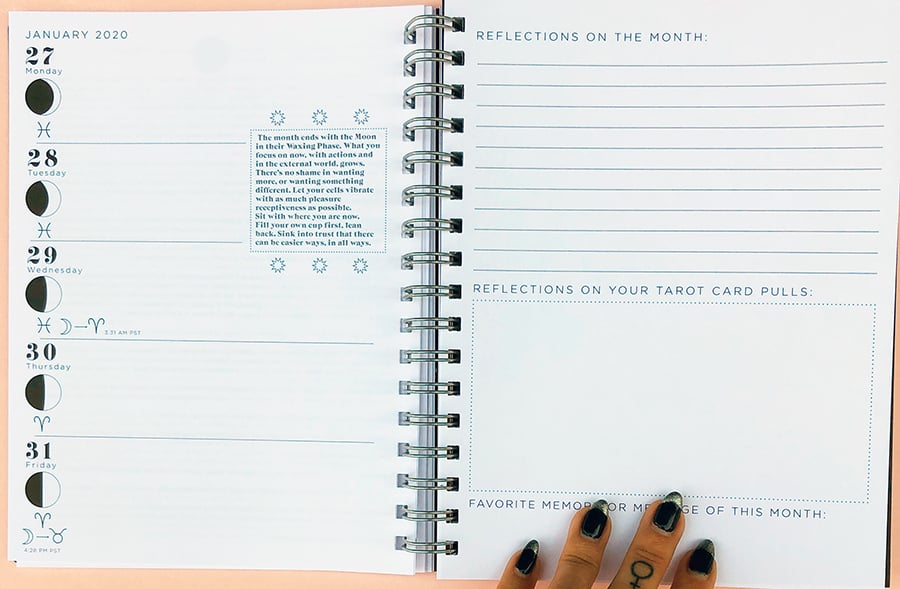 JANUARY 2020
27
Monday
28
Tuesday
29
Wednesday
3:31 AM PST
30
Thursday
31
Friday
4:28 PM PST
The month ends with the Moon
in their Waxing Phase. What you
focus on now, with actions and
in the external world, grows.
There's no shame in wanting
more, or wanting something
different. Let your cells vibrate
with as much pleasure
receptiveness as possible.
Sit with where you are now.
Fill your own cup first, lean
back. Sink into trust that there
can be easier ways, in all ways.
REFLECTIONS ON THE MONTH:
REFLECTIONS ON YOUR TAROT CARD PULLS:
FAVORITE OR OF THIS MONTH: